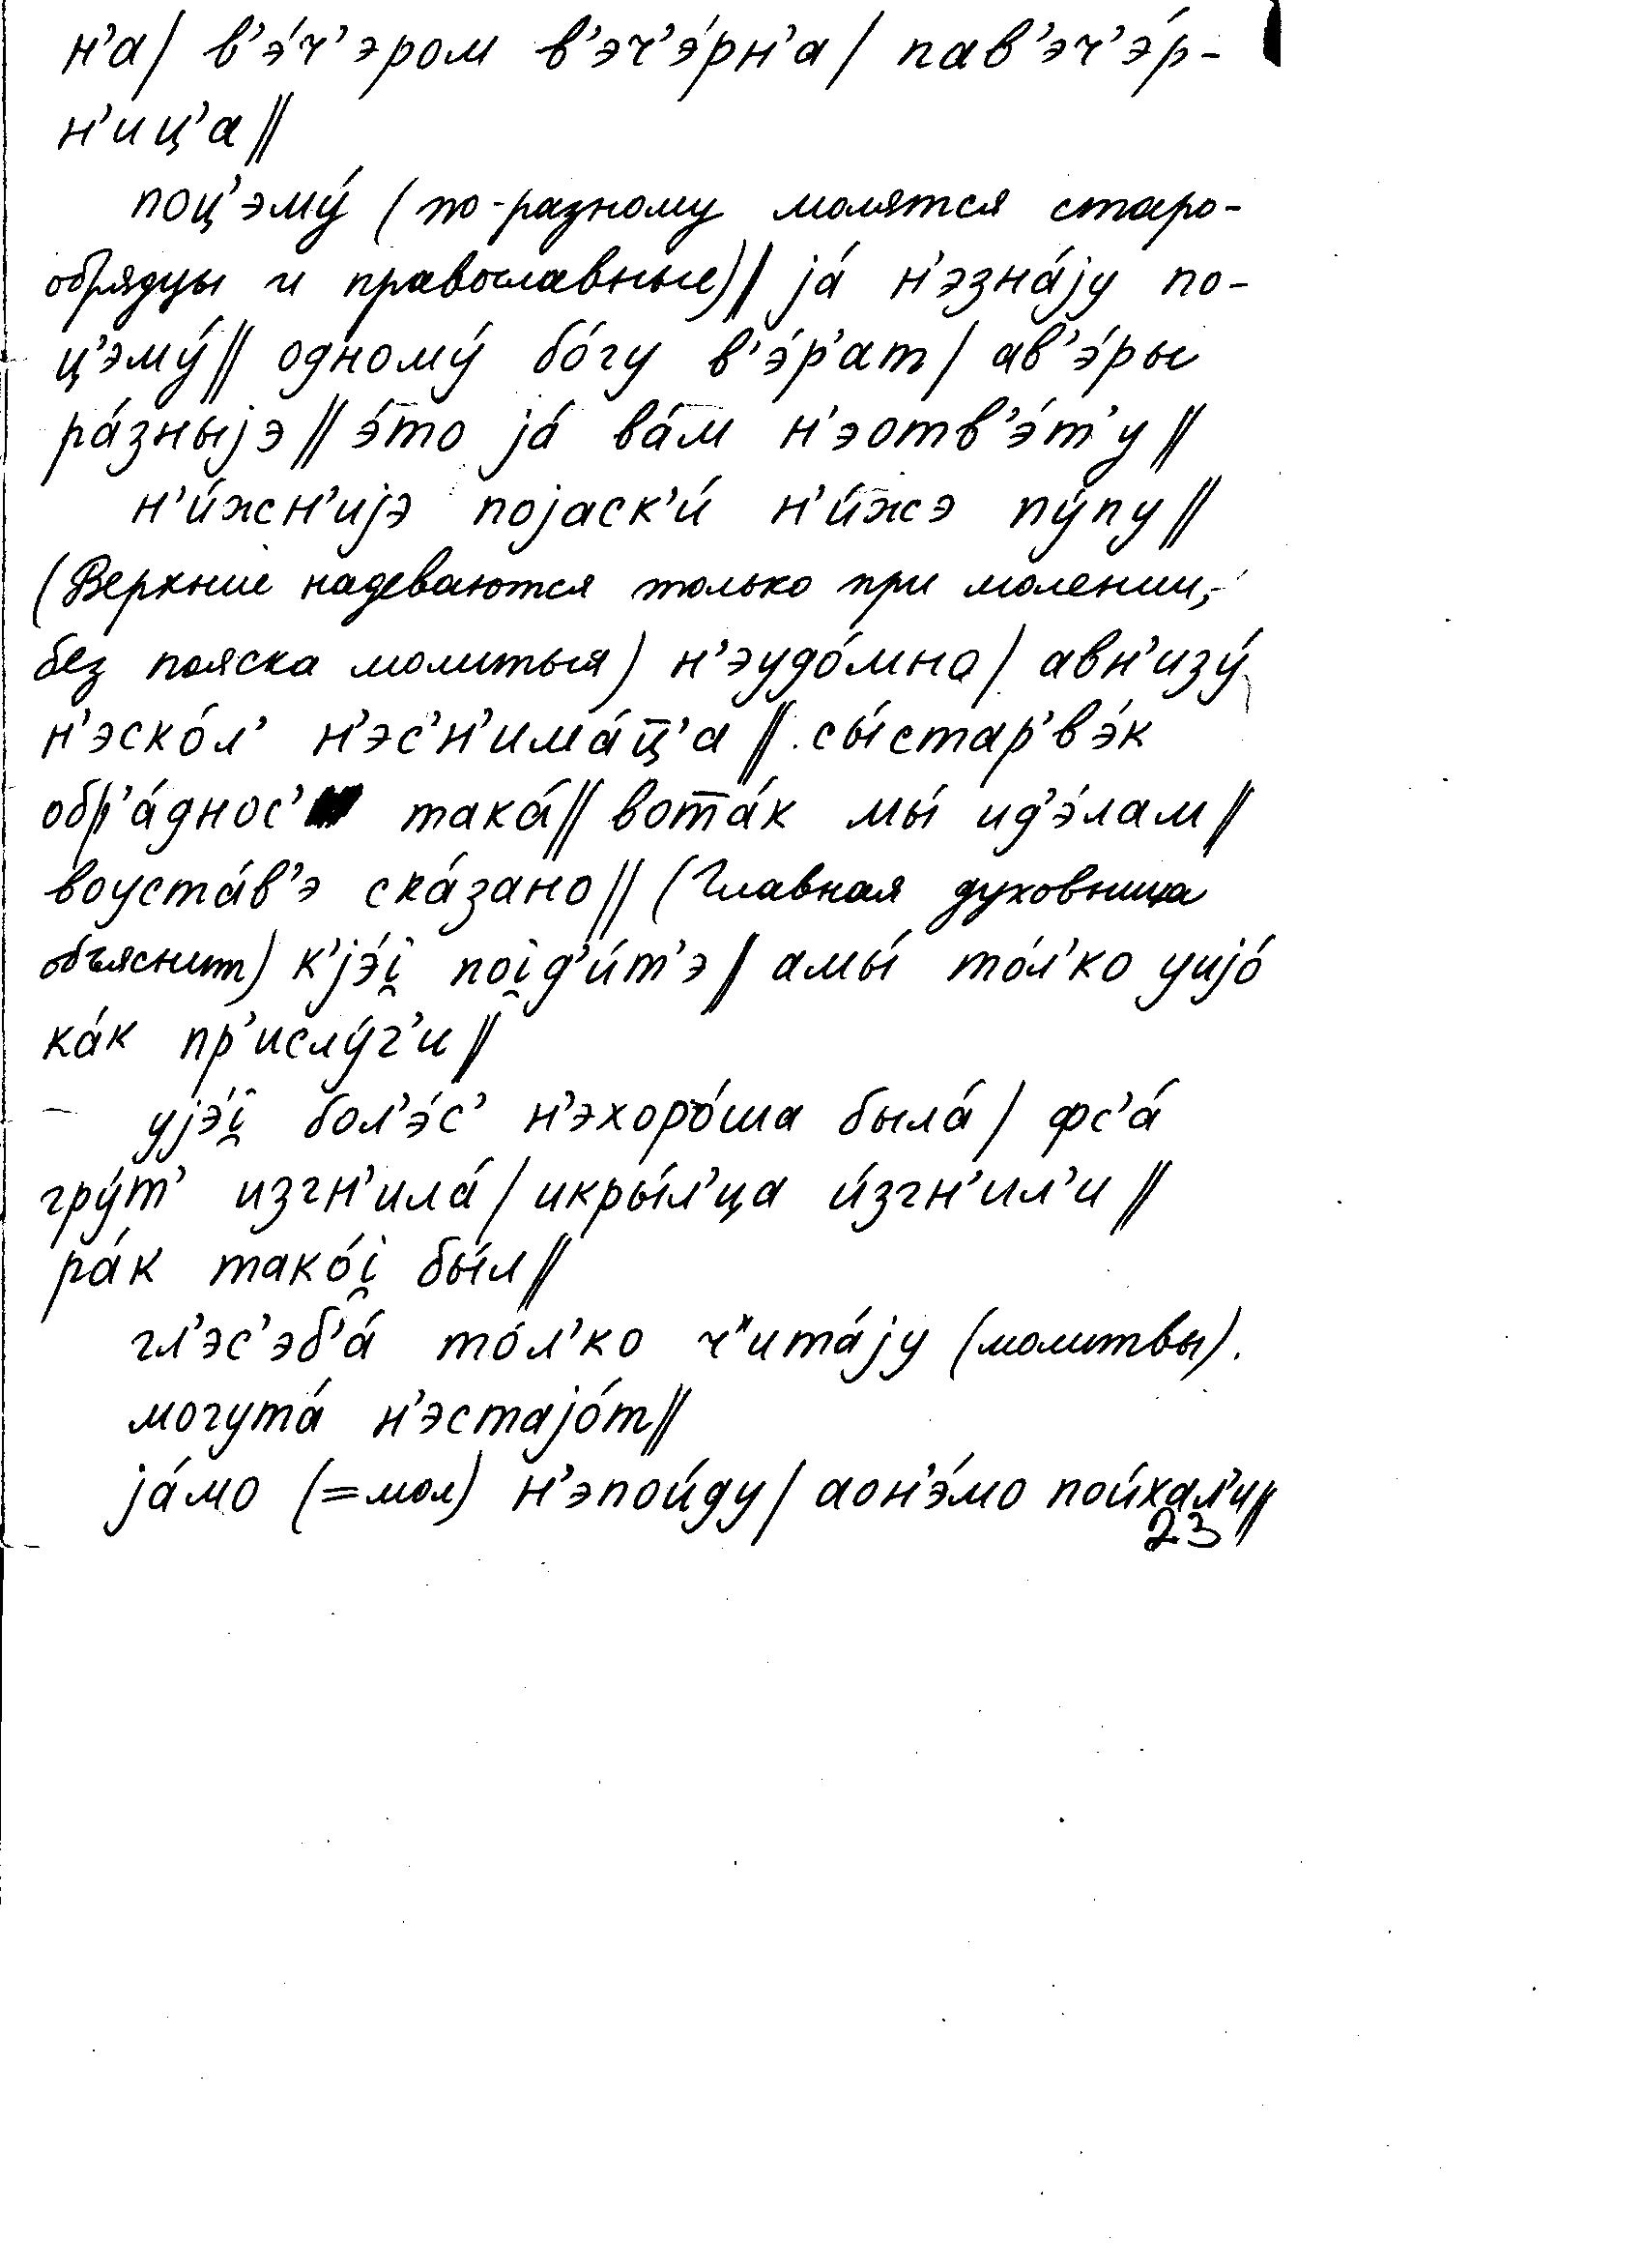 н’а/ в’э́ч’эром в’эч’э́рн’а/ пав’эч’э́р-
н’иц’а//
поц’эму́ (по-разному молятся старо-
обрядцы и православные)// jа́ н’эзна́jу по-
ц’эму́// одному́ бо́гу в’э́р’ат/ ав’э́ры
ра́зныjэ// э́то jа́ ва́м н’эотв’э́т’у//
н’и́жн’иjэ поjаск’и́ н’и́жэ пу́пу//
(Верхние надеваются только при молении,
без пояска молиться) н’эудо́мно/ авн’изу́
н’эско́л’ н’эс’н’има́ц̅’а// сы́стар’в’э́к
обр’а́днос’ така́// вот̅а́к мы́ ид’э́лам//
воуста́в’э ска́зано// (Главная духовница
объяснит) к’jэ́i̯ поi̯д’и́т’э// амы́ то́л’ко уиjо́
ка́к пр’ислу́г’и//
уjэ́i̯ бол’э́с’ н’эхоро́ша была́/ фс’а́
гру́т’ изгн’ила́/ икры́л’ца и́згн’ил’и//
ра́к тако́i̯ бы́л//
гл’эс’эб’а́ то́л’ко ч"ита́jу (молитвы).
могута́ н’эстаjо́т//
jа́мо (=мол) н’эпои́ду/ аон’э́мо пои́хал’и//
23